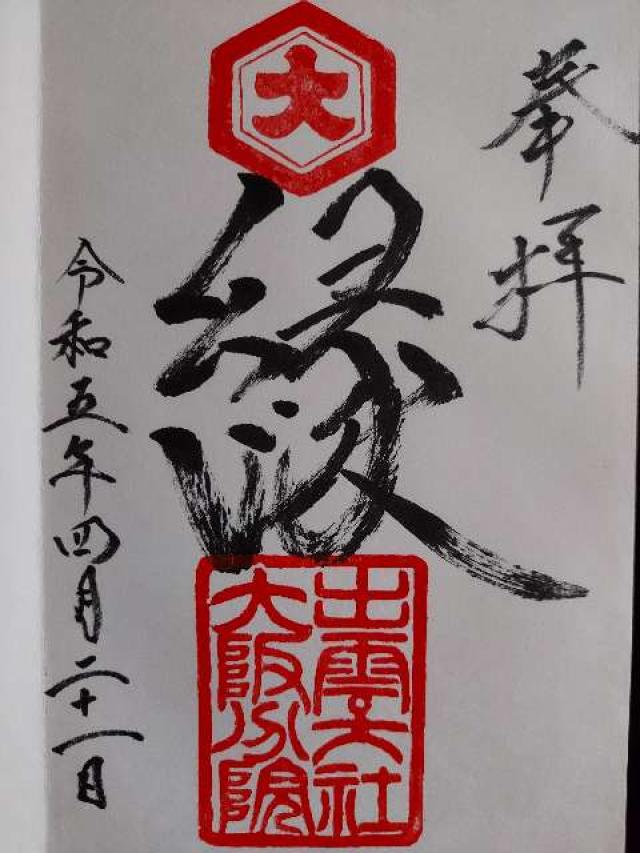 奉拝
大
縁
出雲大社
大阪分院
令和五年四月二十一日